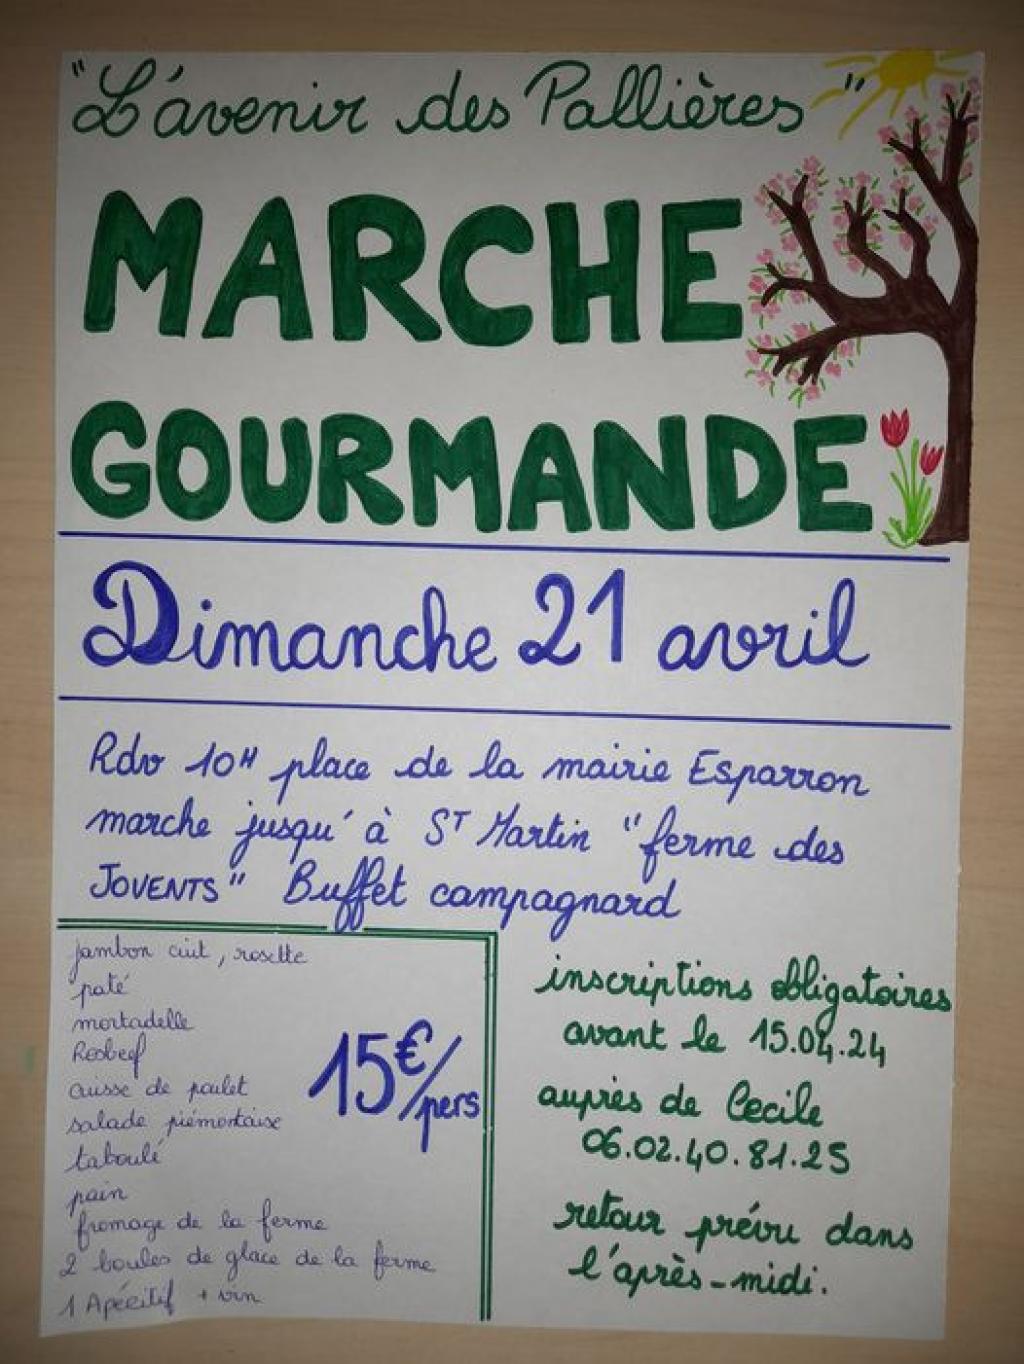 "L'avenir des Pallières"
MARCHE
GOURMANDE
Dimanche 21 avril
Rdv 10H place de la mairie Esparron
marche jusqu'à ST Martin "ferme des
JOVENTS" Buffet campagnard
jambon cuit, rosette
paté
mortadelle
Rosbeef
cuisse de poulet
salade piémontaise
taboulé
pain
fromage de la ferme
2 boules de glace de la ferme
1 Apéritif + vin
15€/pers
inscriptions obligatoires
avant le 15.04.24
auprès de Cecile
06.02.40.81.25
retour prévu dans
l'après-midi.